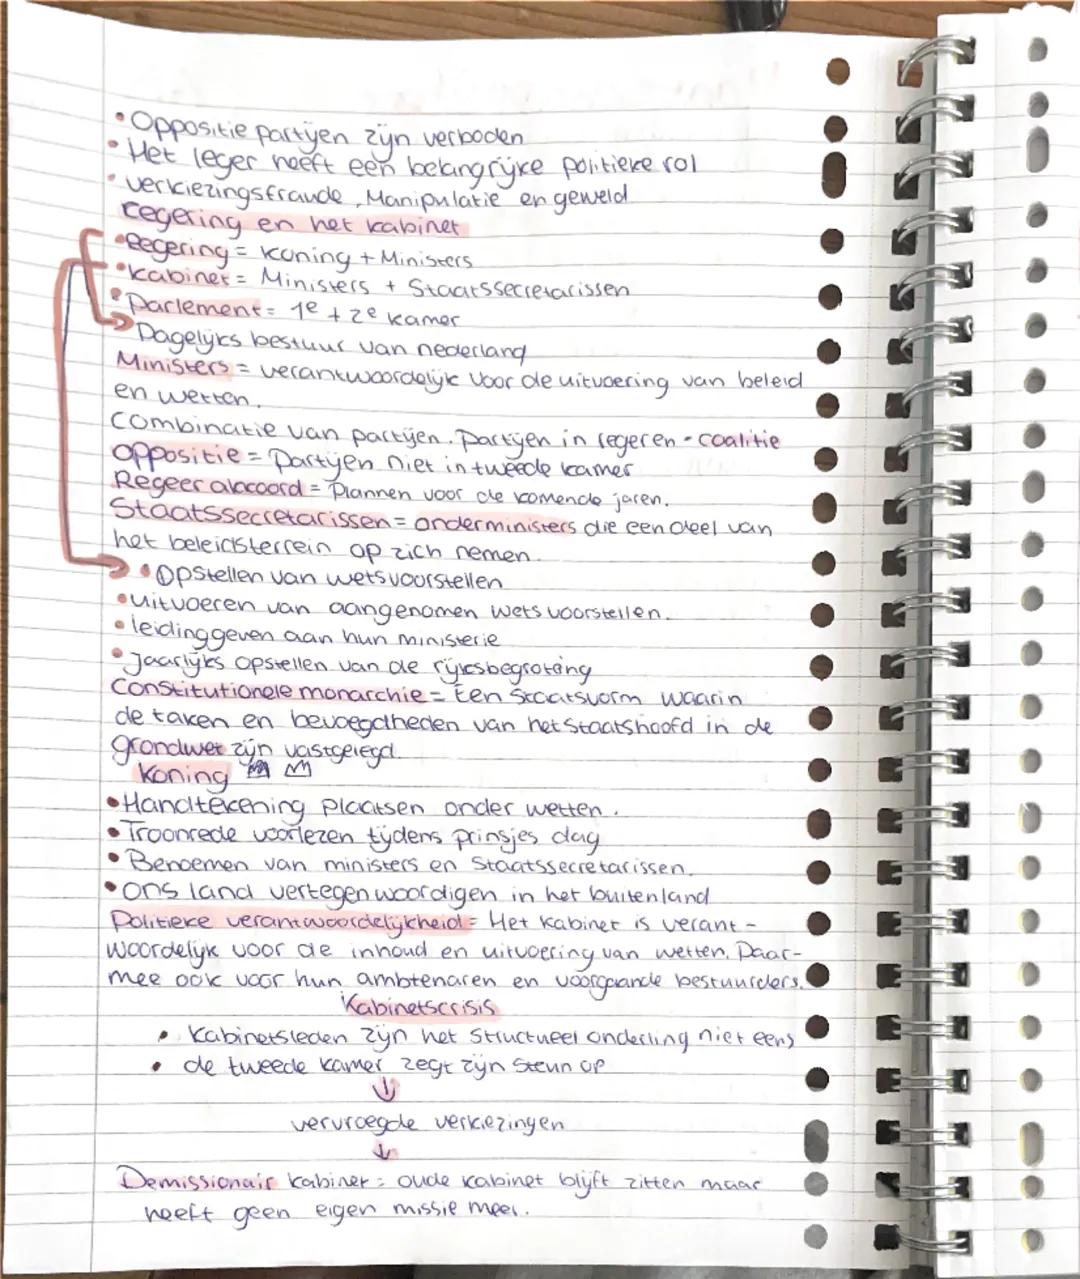 • Oppositie partijen zijn verboden
• Het leger heeft een belangrijke politieke rol
• verkiezingsfraude, Manipulatie en geweld
regering en het kabinet
• Regering = koning + Ministers
• kabinet = Ministers + Staatssecretarissen
• Parlement = 1e + 2e kamer
Dagelijks bestuur van nederland
Ministers = verantwoordelijk voor de uitvoering van beleid
en wetten.
Combinatie van partijen. Partijen in regeren - coalitie
Oppositie = Partijen niet in tweede kamer
Regeer akkoord = Plannen voor de komende jaren.
Staatssecretarissen = onderministers die een deel van
het beleidsterrein op zich nemen.
• Opstellen van wetsvoorstellen
• uitvoeren van aangenomen wets voorstellen.
• leidinggeven aan hun ministerie
• Jaarlijks opstellen van de rijksbegroting
Constitutionele monarchie = Een Staatsvorm waarin
de taken en bevoegdheden van het Staatshoofd in de
grondwet zijn vastgelegd.
Koning
• Handtekening plaatsen onder wetten.
• Troonrede voorlezen tijdens prinsjes dag
• Benoemen van ministers en Staatssecretarissen.
• Ons land vertegenwoordigen in het buitenland
Politieke verantwoordelijkheid = Het kabinet is verant-
woordelijk voor de inhoud en uitvoering van wetten. Daar-
mee ook voor hun ambtenaren en voorgaande bestuurders.
Kabinetscrisis
• Kabinetsleden zijn het structureel onderling niet eens
• de tweede kamer zegt zijn steun op
↓
vervroegde verkiezingen
↓
Demissionair kabinet = oude kabinet blijft zitten maar
heeft geen eigen missie meer.